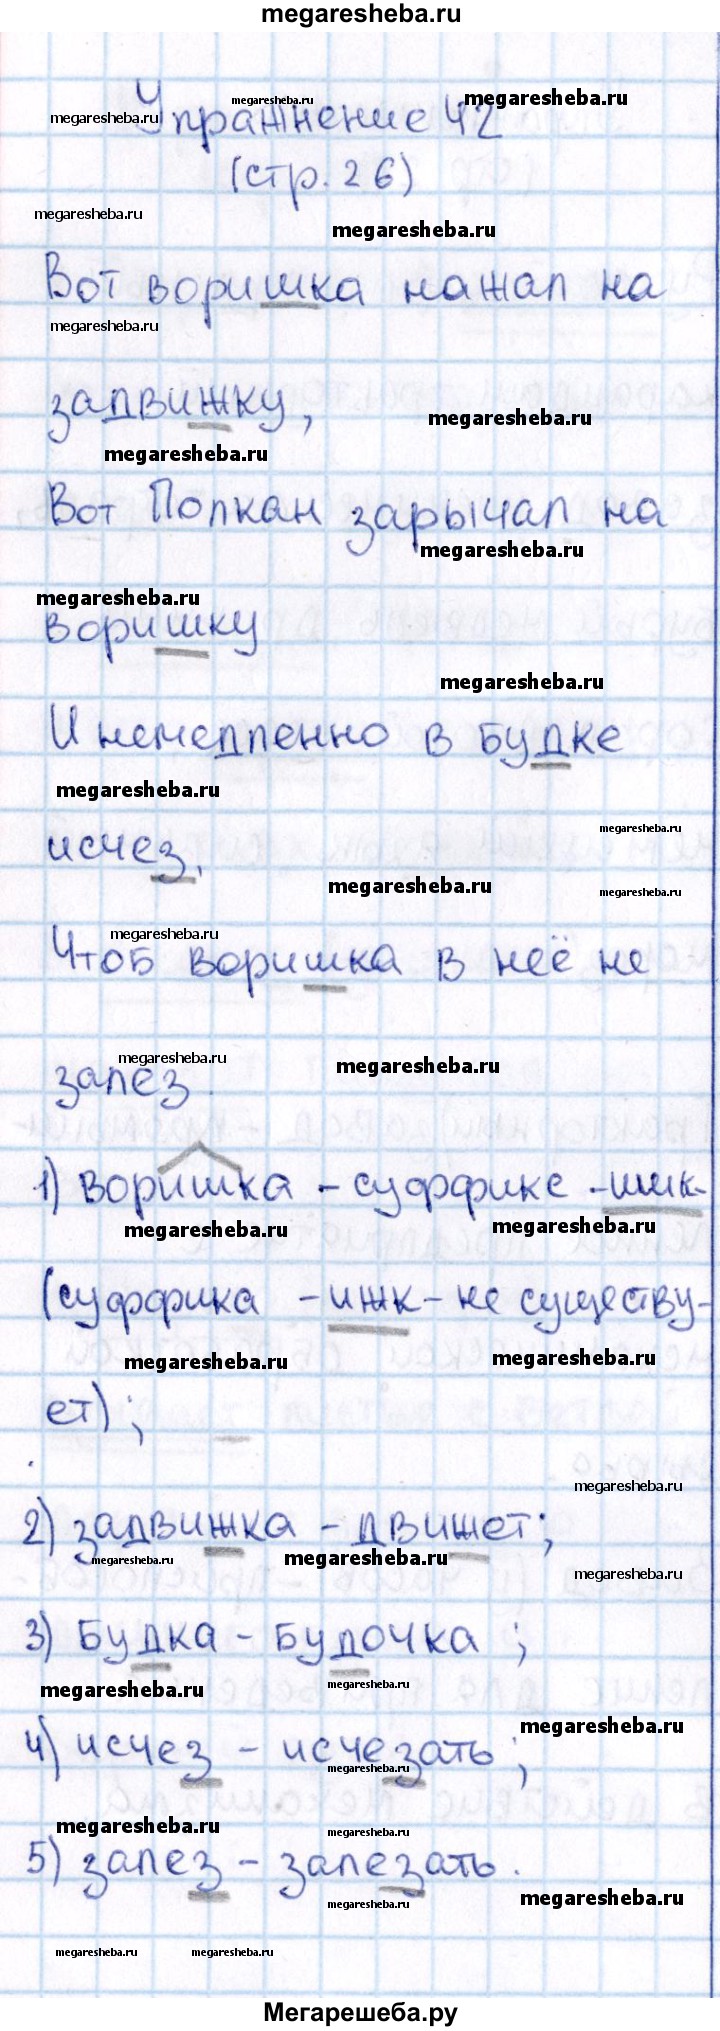 megaresheba.ru
Упражнение 42
(стр. 26)
Вот воришка нажал на
задвижку,
Вот Полкан зарычал на
воришку
И немедленно в будке
исчез,
Чтоб воришка в неё не
залез.
1) воришка - суффикс -ишк-
(суффикса -ижк- не существу-
ет);
2) задвижка - движет;
3) будка - будочка;
4) исчез - исчезать;
5) залез - залезать.
Мегарешеба.ру